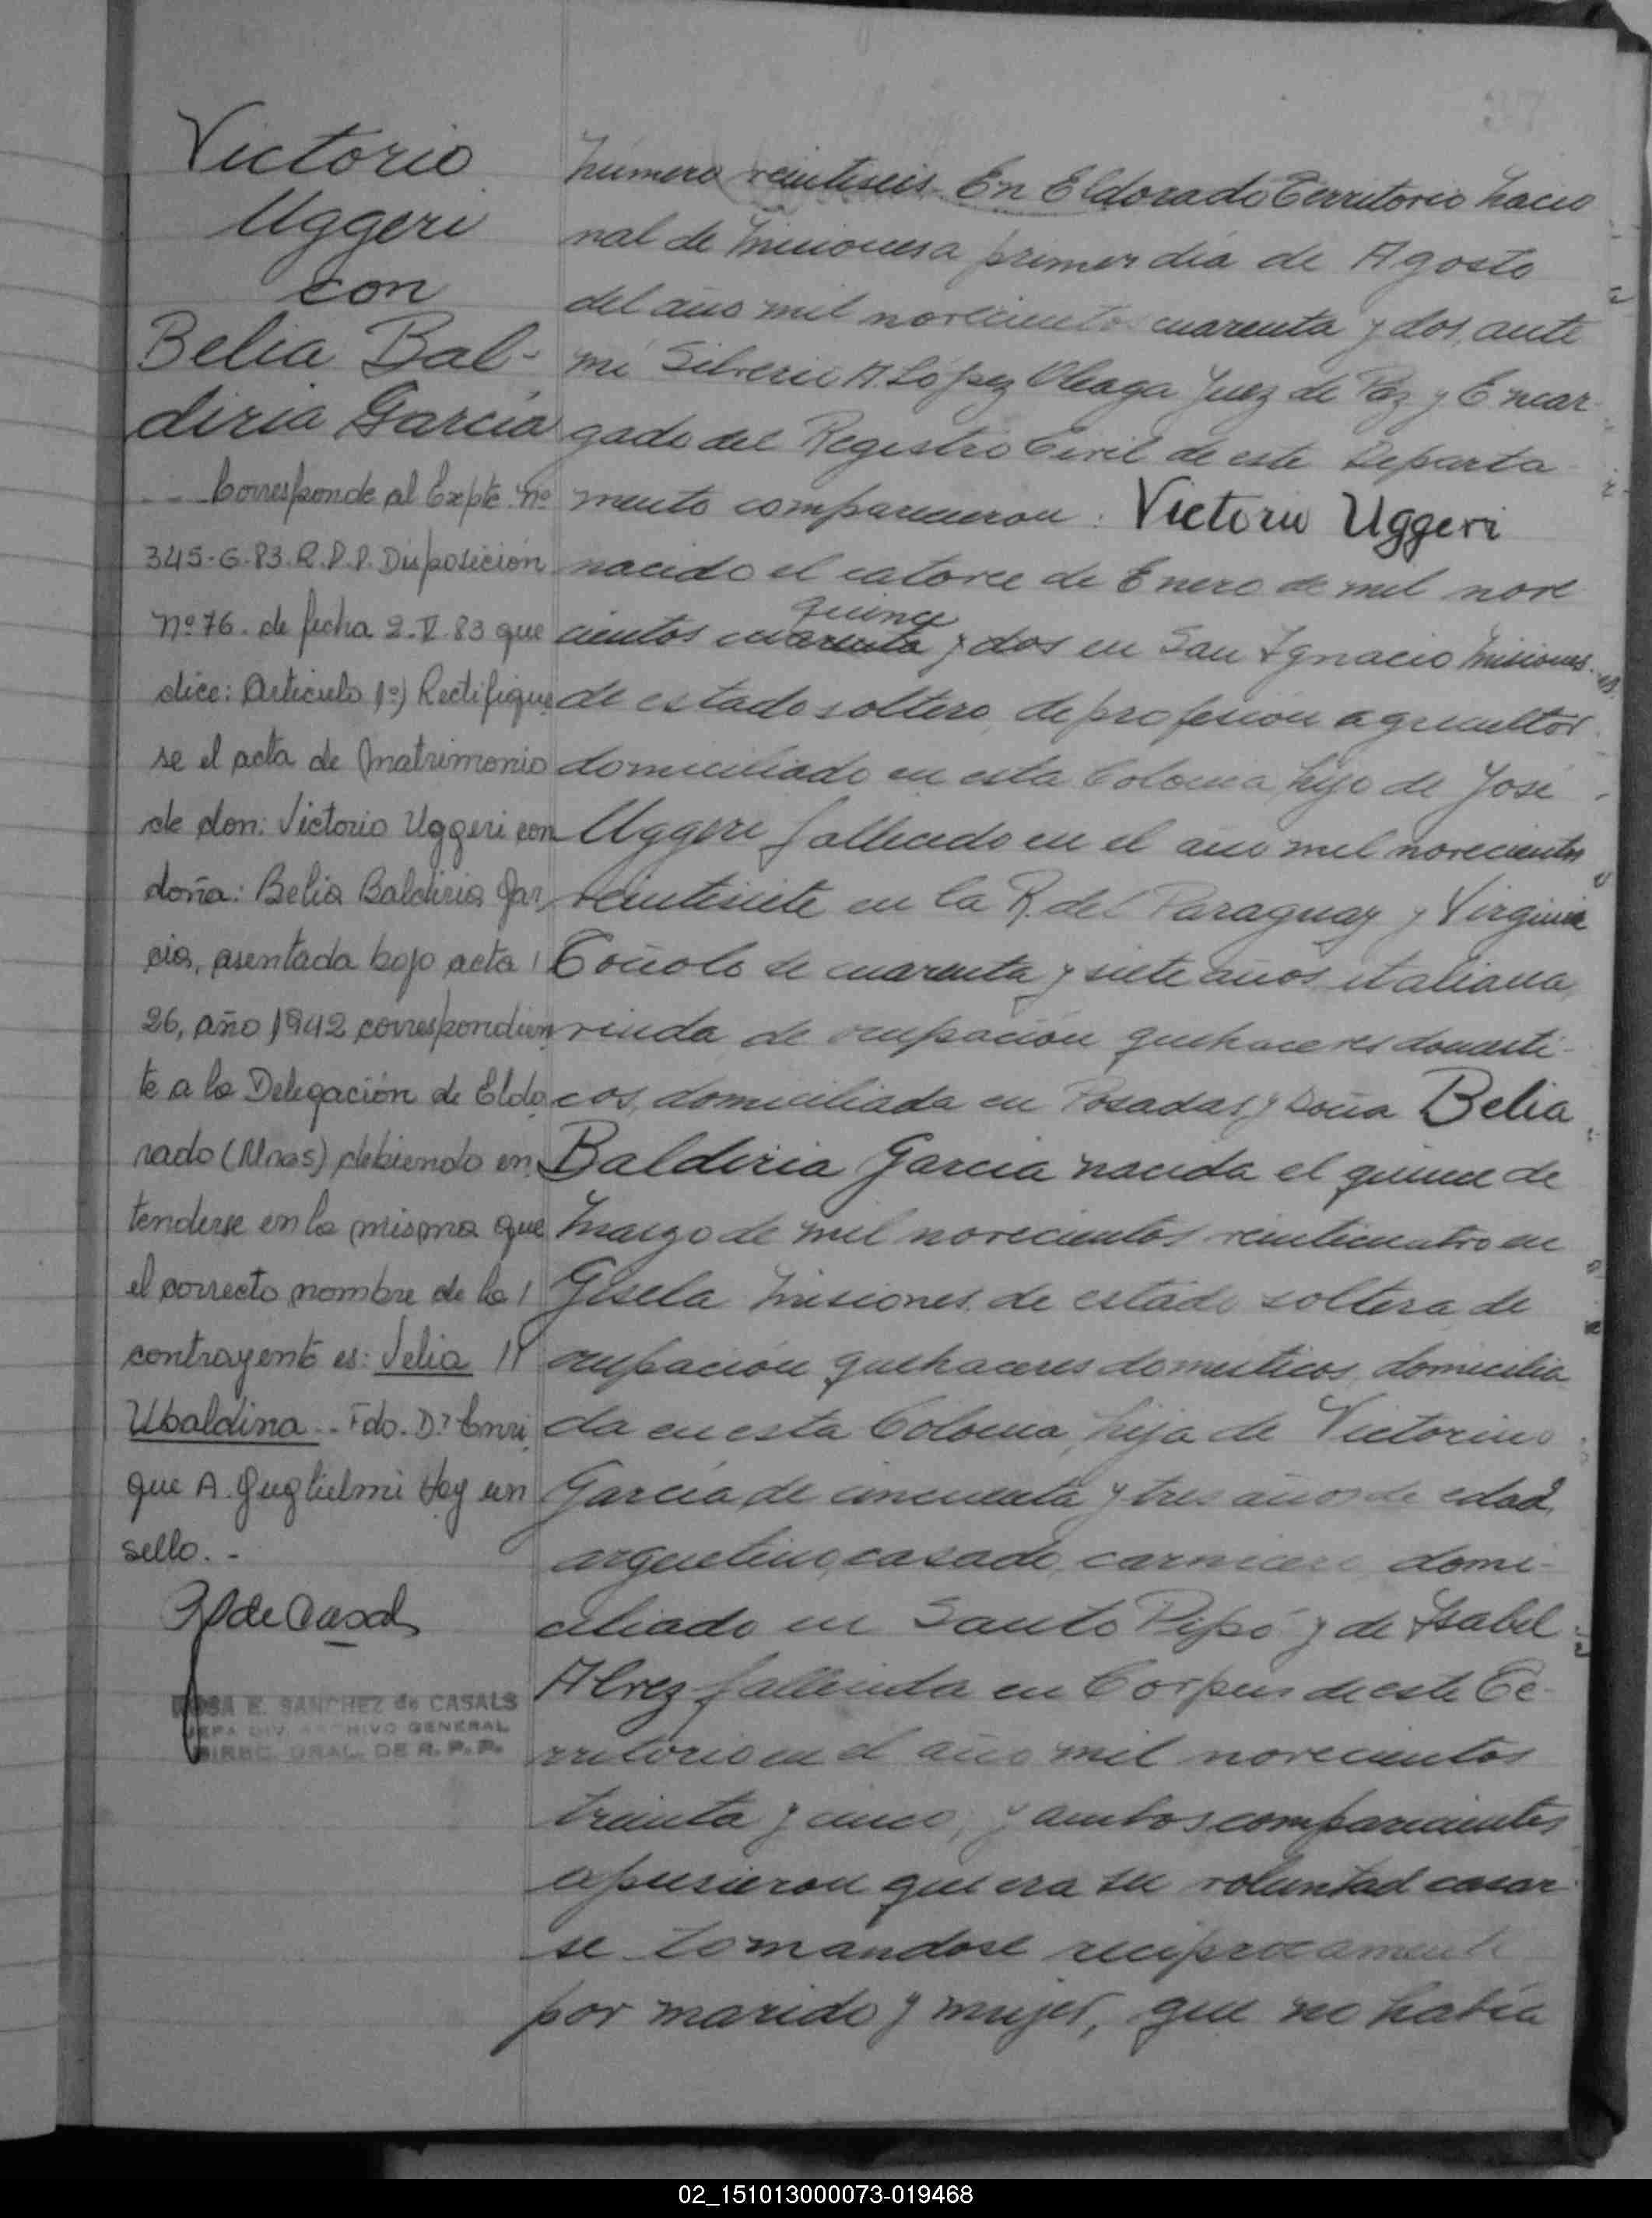 Victorio
Uggeri
con
Belia Bal-
diria García
Corresponde al Expte. nº
345-G-83.R.P.P. Disposición
nº 76. de fecha 2.V.83 que
dice: Artículo 1º) Rectifique
se el acta de matrimonio
de don: Victorio Uggeri con
doña: Belia Baldiria Gar
cia, asentada bajo acta
26, año 1942 correspondien
te a la Delegación de Eldo
rado (Mnes) debiendo en
tenderse en la misma que
el correcto nombre de la
contrayente es: Velia
Ubaldina.. Fdo. Dr Enri
que A. Guglielmi Hay un
sello. -
ROSA E. SANCHEZ de CASALS
JEFA DIV. ARCHIVO GENERAL
DIREC. GRAL. DE R.P.P.
Número veintiseis En Eldorado Territorio Nacio
nal de Misiones a primer día de Agosto
del año mil novecientos cuarenta y dos, ante
mí Silverio A. López Oleaga Juez de Paz y Encar
gado del Registro Civil de este Departa
mento comparecieron: Victorio Uggeri
nacido el catorce de Enero de mil nove
quince
cientos cuarenta y dos en San Ignacio Misiones
de estado soltero, de profesión agricultor
domiciliado en esta Colonia, hijo de José
Uggeri fallecido en el año mil novecientos
veintisiete en la R. del Paraguay y Virginia
de cuarenta y siete años italiana,
viuda de ocupación quehaceres domésti-
cos, domiciliada en Posadas, y Doña Belia
Baldiria García nacida el quince de
Marzo de mil novecientos veinticuatro en
Gisela Misiones, de estado soltera de
ocupación quehaceres domésticos, domicilia
da en esta Colonia, hija de Victorino
García de cincuenta y tres años de edad,
argentino, casado, carnicero domi-
ciliado en Santo Pipó y de Isabel
Alvez fallecida en Corpus de este Te-
rritorio en el año mil novecientos
treinta y cinco, y ambos comparecientes
expusieron que era su voluntad casar
se tomandose reciprocamente
por marido y mujer, que no había
02_151013000073-019468